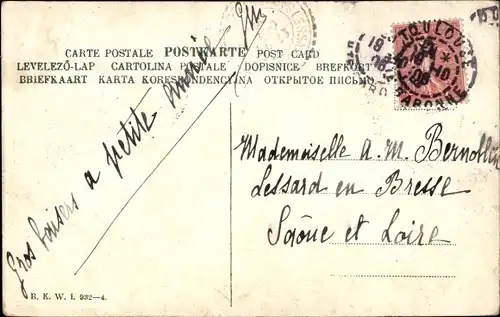 CARTE POSTALE POSTKARTE POST CARD
LEVELEZŐ-LAP CARTOLINA POSTALE DOPISNICE BREFKORT
BRIEFKAART KARTA KORESPONDENCYJNA ОТКРЫТОЕ ПИСЬМО
TOULOUSE
18 10
18 10
08
Gros baisers a petite amie
Mademoiselle A. M. Bernollin
Lessard en Bresse
Saône et Loire
B. K. W. I. 932–4.